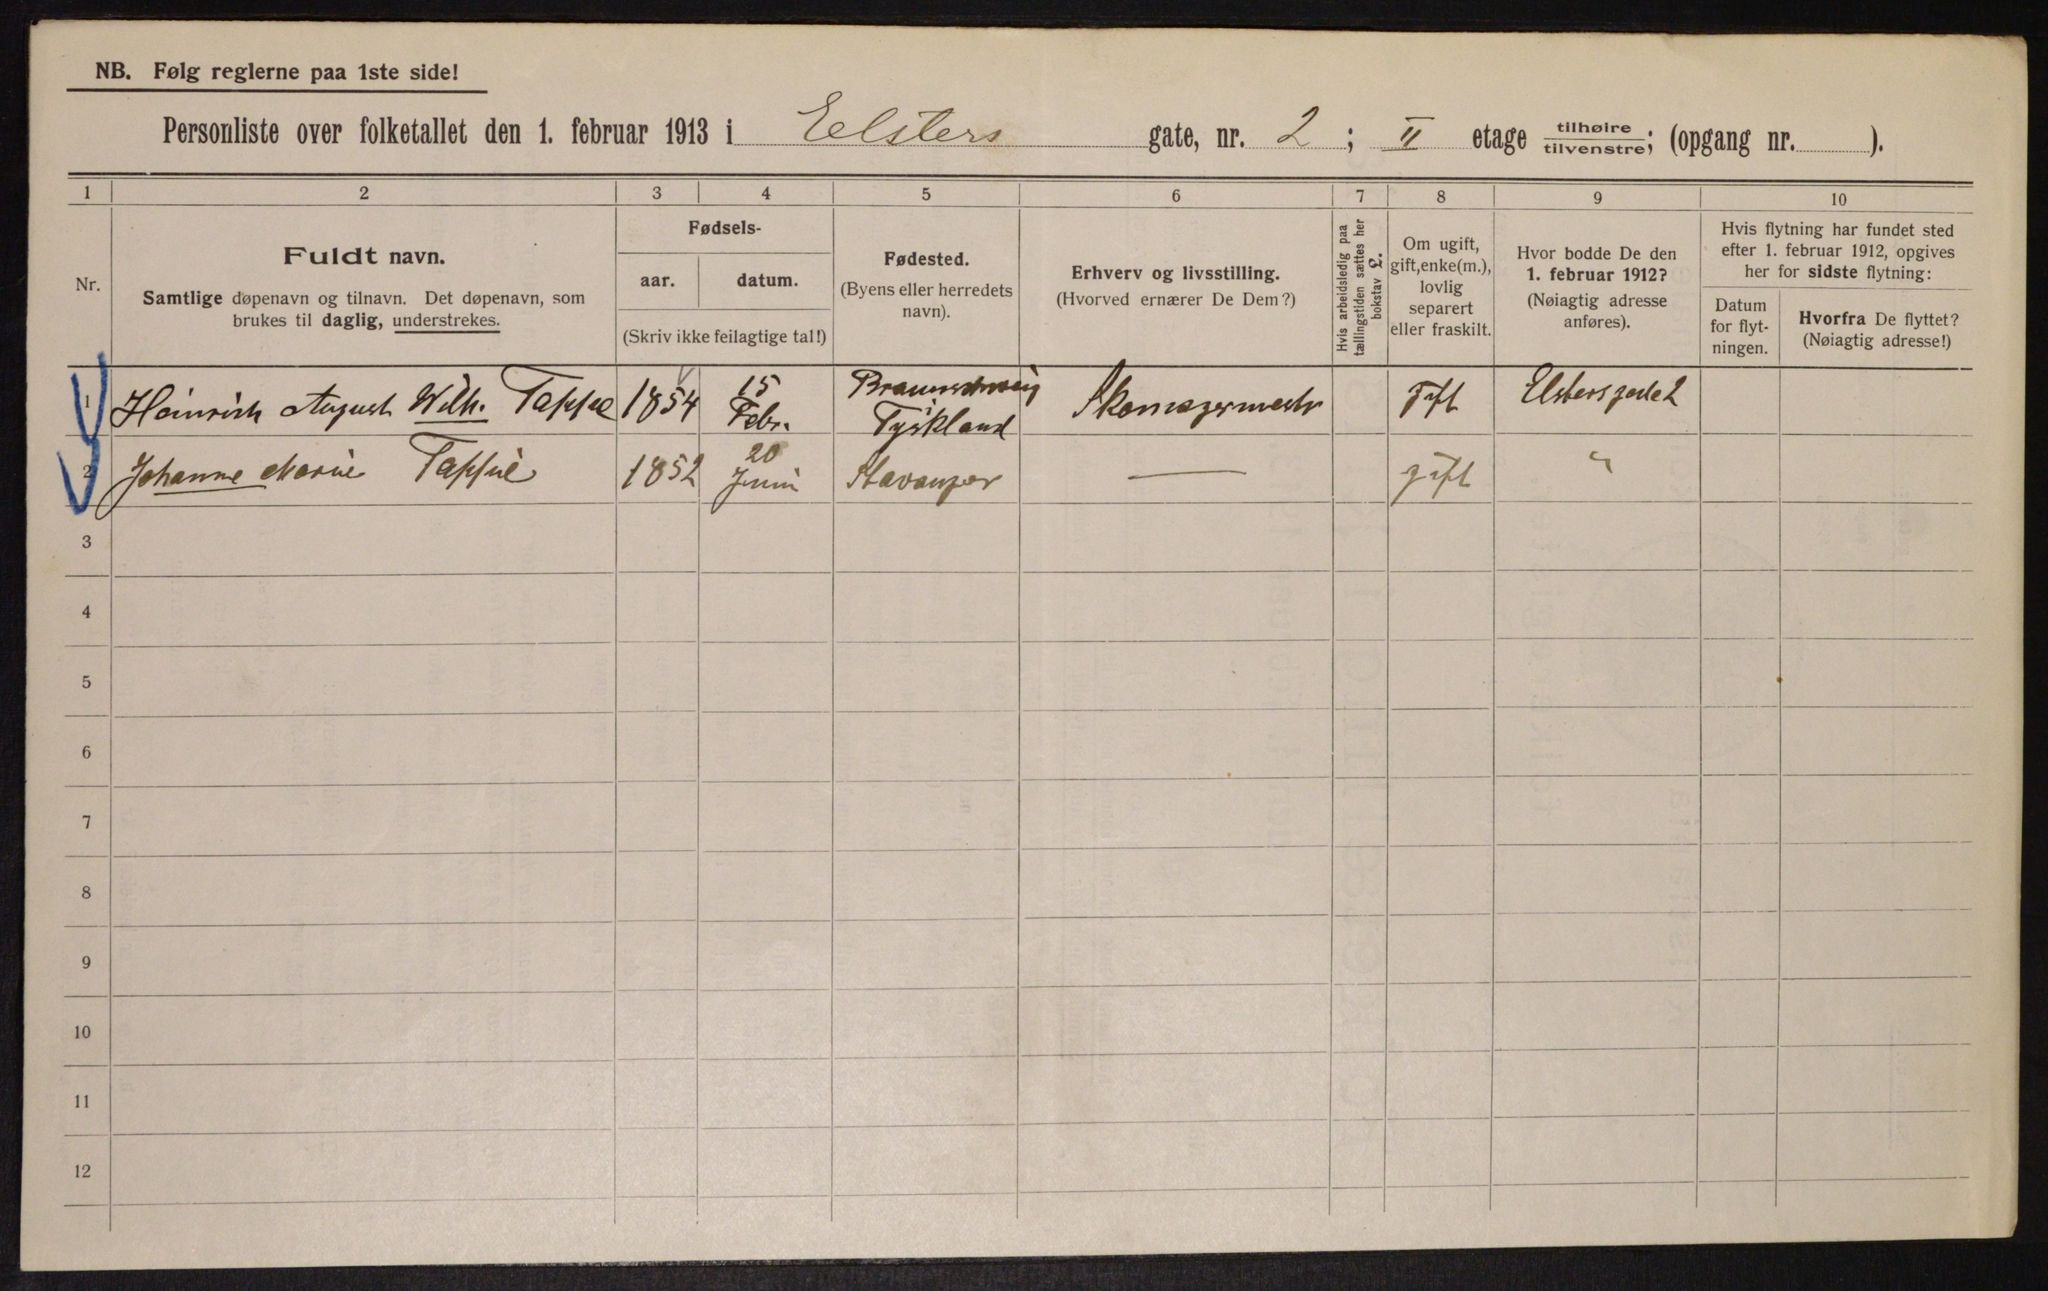 NB. Følg reglerne paa 1ste side!
Personliste over folketallet den 1. februar 1913 i Eelsters gate, nr. 2 ; II etage tilhøire tilvenstre; (opgang nr. ).
1 2 3 4 5 6 7 8 9 10
Nr.
Fuldt navn.
Samtlige døpenavn og tilnavn. Det døpenavn, som
brukes til daglig, understrekes.
Fødsels-
aar. datum.
(Skriv ikke feilagtige tal!)
Fødested.
(Byens eller herredets
navn).
Erhverv og livsstilling.
(Hvorved ernærer De Dem?)
Hvis arbeidsledig paa
tællingstiden sættes her
bokstav L.
Om ugift,
gift, enke(m.),
lovlig
separert
eller fraskilt.
Hvor bodde De den
1. februar 1912?
(Nøiagtig adresse
anføres).
Hvis flytning har fundet sted
efter 1. februar 1912, opgives
her for sidste flytning:
Datum
for flyt-
ningen.
Hvorfra De flyttet?
(Nøiagtig adresse!)
1 Heinrich August Wilh. Tappe 1854 15 Febr. Braunschweig i Tyskland Skomagermestr gift Elstersgade 2
2 Johanne Marie Tappe 1852 20 Juni Stavanger — gift "
3
4
5
6
7
8
9
10
11
12